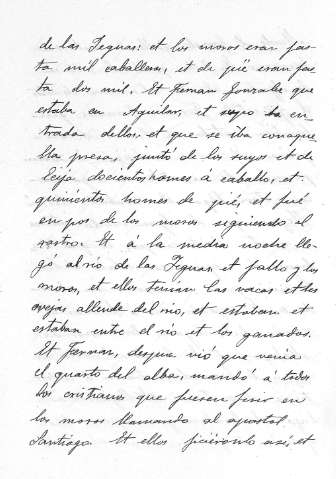 de las Yeguas: et los moros eran fas-
ta mil caballeros, et de pié eran fas-
ta dos mil. Et Fernan Gonzalez que
estaba en Aguilar, et supo la en-
trada dellos, et que se iba con aque-
lla presa, juntó de los suyos et de
Ecija docientos homes á caballo, et
quinientos homes de pié, et fué
en pos de los moros siguiendo el
rastro. Et a la media noche lle-
gó al rio de las Yeguas et falló y los
moros, et ellos tenian las vacas et las
ovejas allende del rio, et estaban et
estaban entre el rio et los ganados.
Et Fernan, desque vió que venia
el quarto del alba, mandó á todos
los cristianos que fuesen ferir en
los moros llamando al apostol
Santiago. Et ellos ficiéronlo asi, et